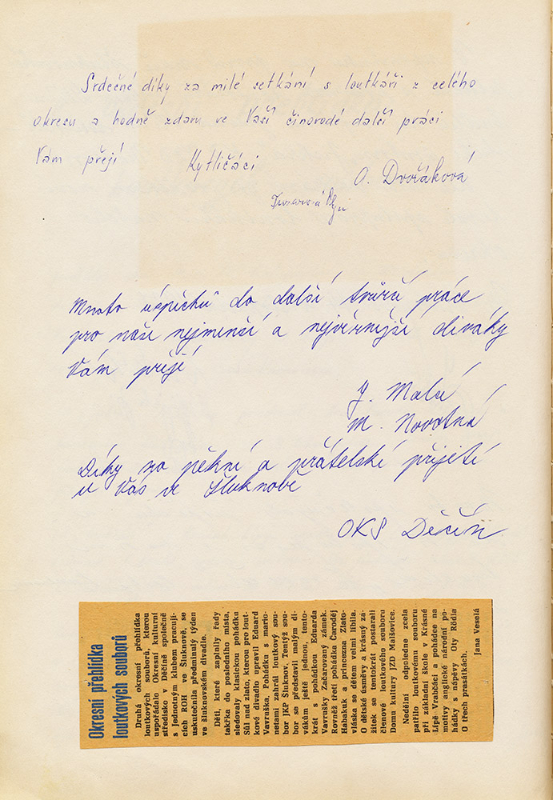 Srdečné díky za milé setkání s loutkáři z celého
okresu a hodně zdaru ve Vaší činorodé další práci
Vám přejí Kytličáci
O. Dvořáková
Mnoho úspěchů do další tvůrčí práce
pro naše nejmenší a nejvěrnější diváky
Vám přejí
J. Malá
M. Novotná
Díky za pěkné a přátelské přijetí
u Vás ve Šluknově
OKS Děčín
Okresní přehlídka
loutkových souborů
Druhá okresní přehlídka
loutkových souborů, kterou
uspořádalo Okresní kulturní
středisko v Děčíně společně
s Jednotným klubem pracují-
cích ROH ve Šluknově, se
uskutečnila předminulý týden
ve šluknovském divadle.
Děti, které zaplnily řady
takřka do posledního místa,
sledovaly klasickou pohádku
Sůl nad zlato, kterou pro lout-
kové divadlo upravil Eduard
Vavruška. Pohádku s mario-
netami zahrál loutkový sou-
bor JKP Šluknov. Tentýž sou-
bor se představil malým di-
vákům ještě jednou, tento-
krát s pohádkou Eduarda
Vavrušky Začarovaný zámek.
Rovněž třetí pohádka Čaroděj
Habakuk a princezna Zlato-
vláska se dětem velmi líbila.
O dětské úsměvy a krásný zá-
žitek se tentokrát postarali
členové loutkového souboru
Domu kultury JZD Malšovice.
Neděle odpoledne zcela
patřilo loutkovému souboru
při základní škole v Krásné
Lípě Vrabčáci a pohádce na
motivy anglické národní po-
hádky s nápěvy Oty Rödla
O třech prasátkách.
Jana Veselá